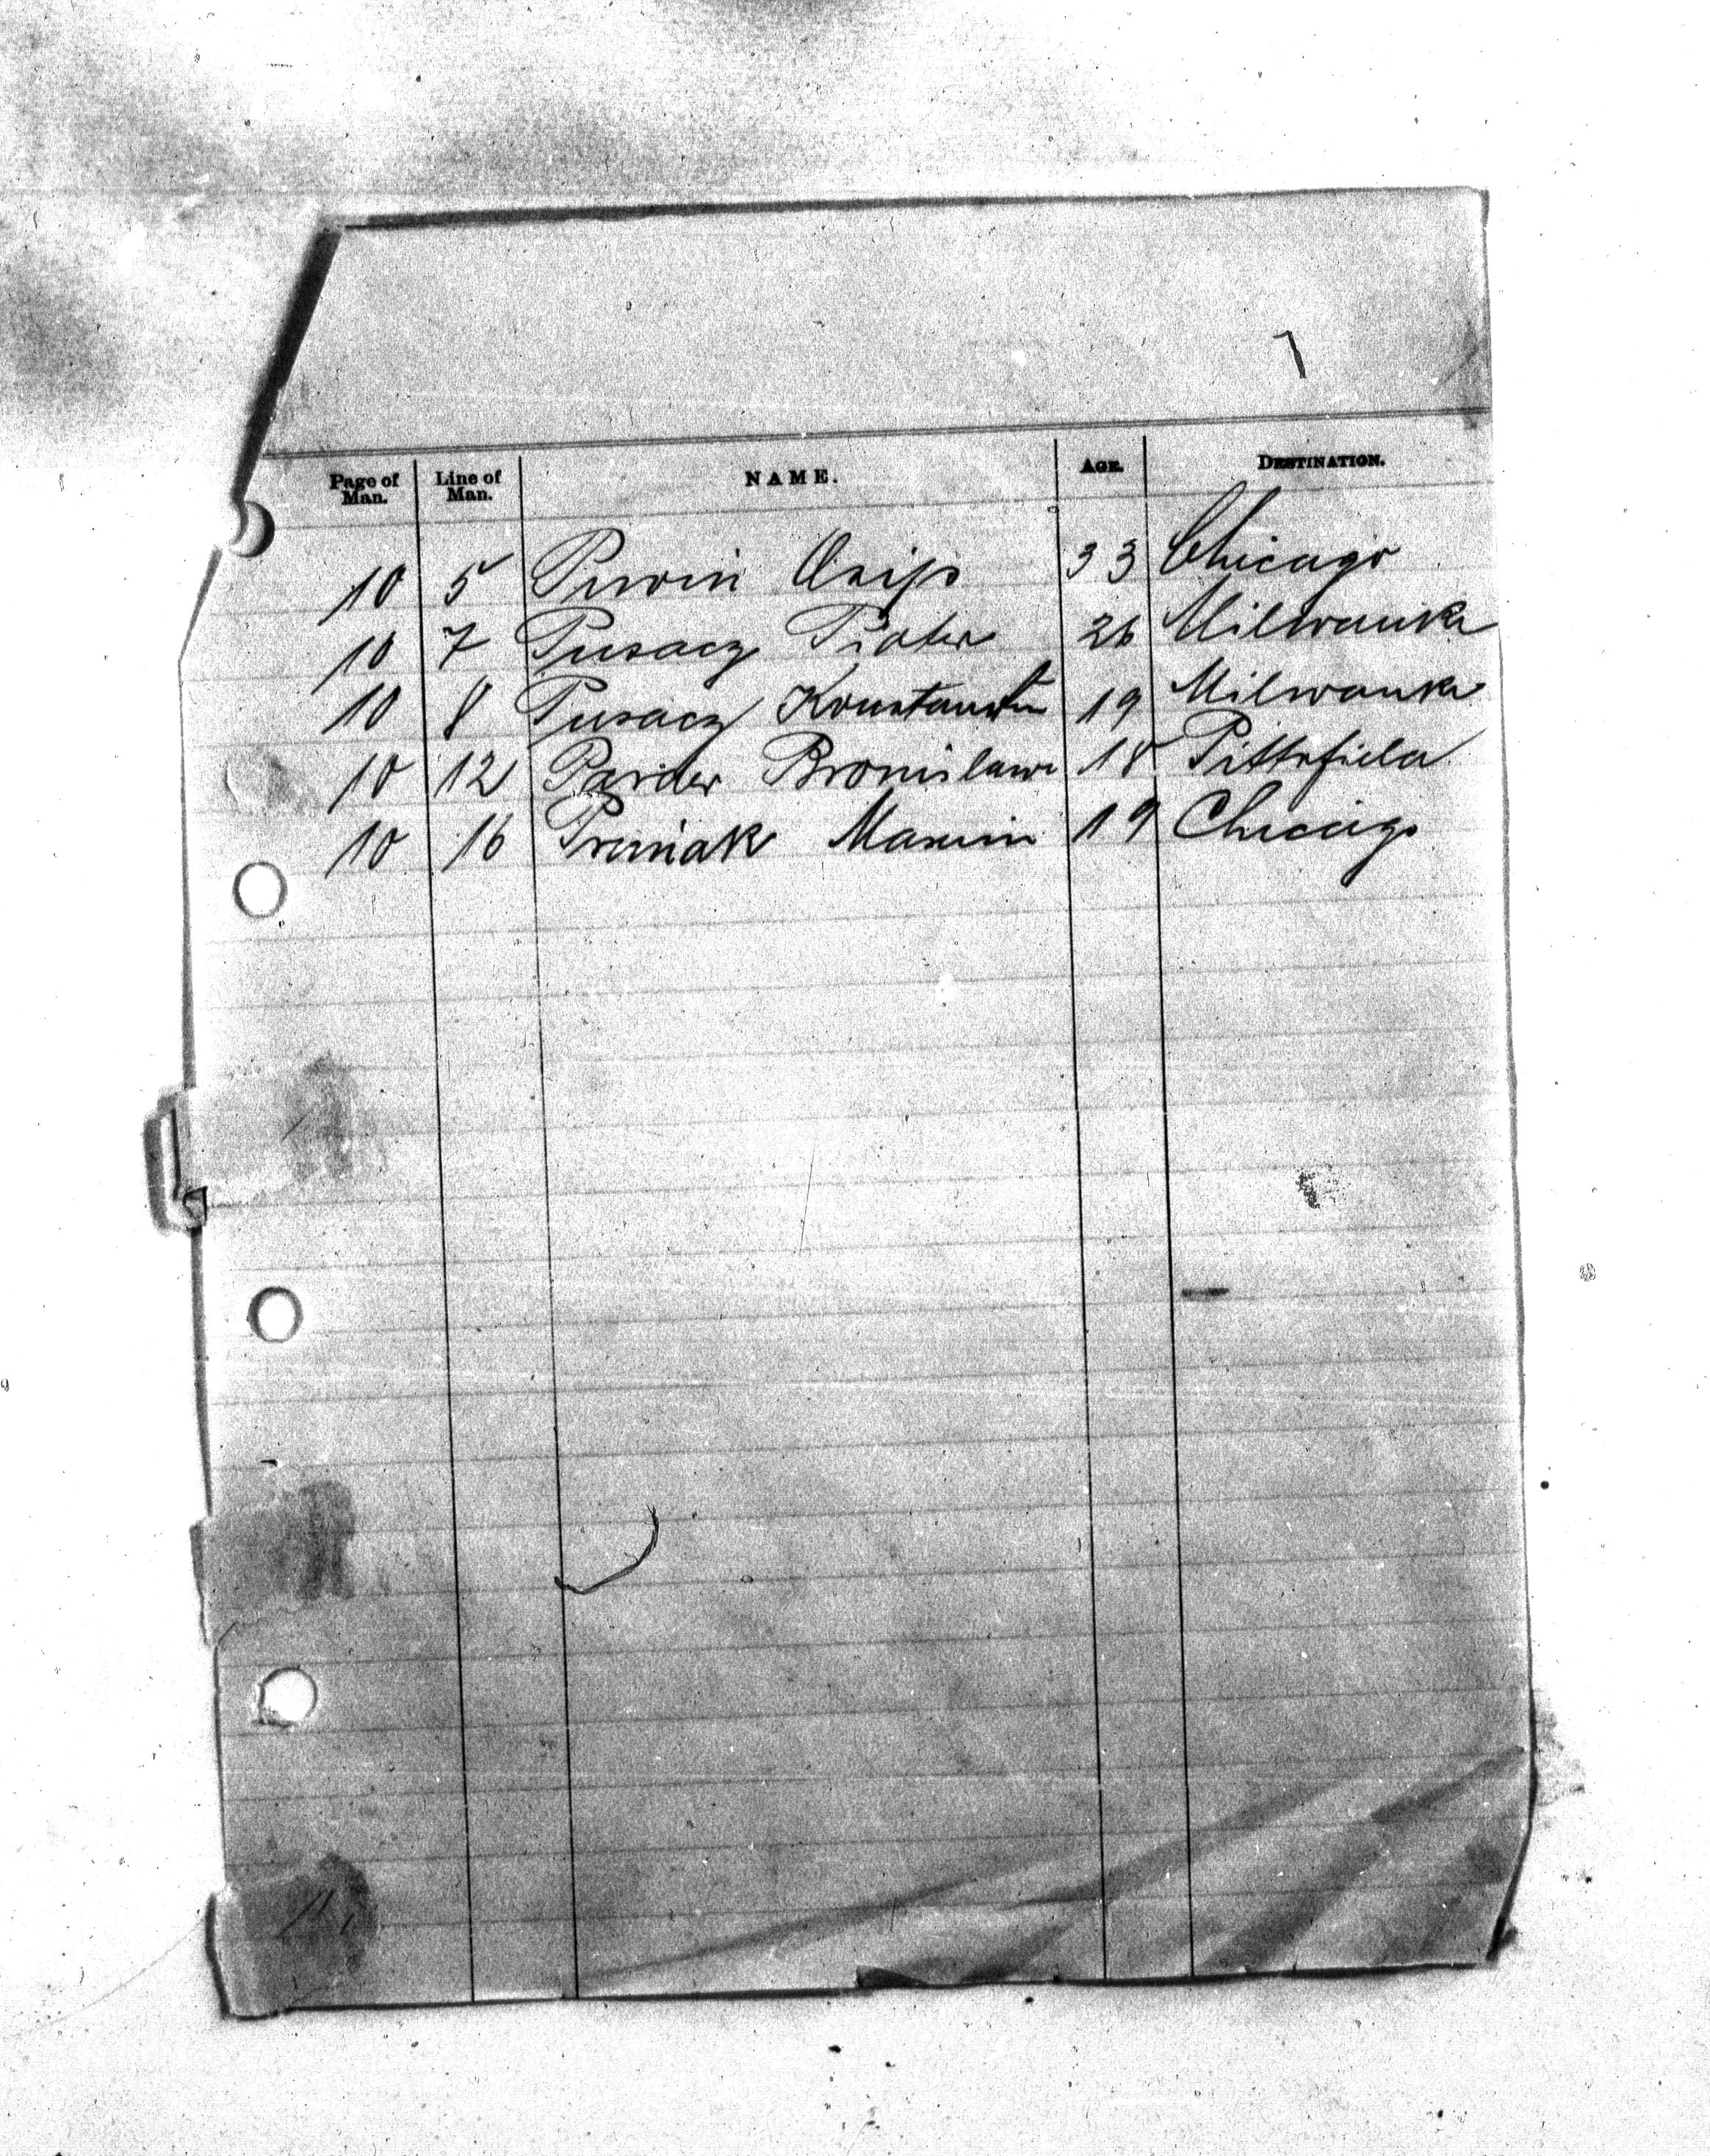 1
Page of Man. Line of Man. NAME. AGE. DESTINATION.
10 5 Purvin Osip 33 Chicago
10 7 Pusacz Piotr 26 Milwauke
10 8 Pusacz Konstantin 19 Milwauke
10 12 Bronislawa 18 Pittsfield
10 16 19 Chicago